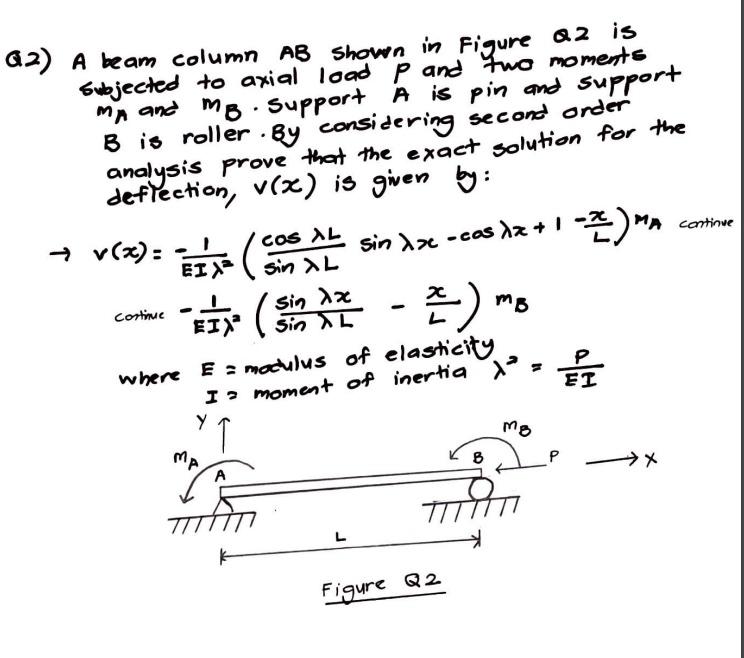 Q2) A beam column AB shown in Figure Q2 is
subjected to axial load P and two moments
MA and MB. Support A is pin and support
B is roller. By considering second order
analysis prove that the exact solution for the
deflection, v(x) is given by:
→ v(x) = - 1/EIλ² ( cos λL / sin λL sin λx - cos λx + 1 - x/L ) MA continue
continue - 1/EIλ² ( sin λx / sin λL - x/L ) MB
where E = modulus of elasticity
I = moment of inertia λ² = P/EI
Y
MA
MB
A
B
P
→ X
L
Figure Q2